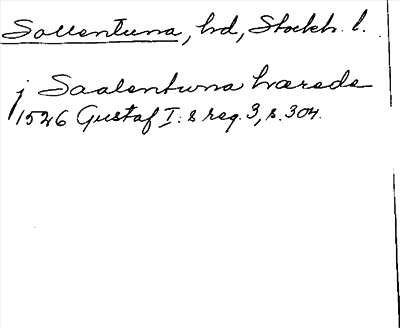 Sollentuna, hd, Stockh. l.
j Saalentuna hærede
1526 Gustaf I:s reg. 3, s. 304.